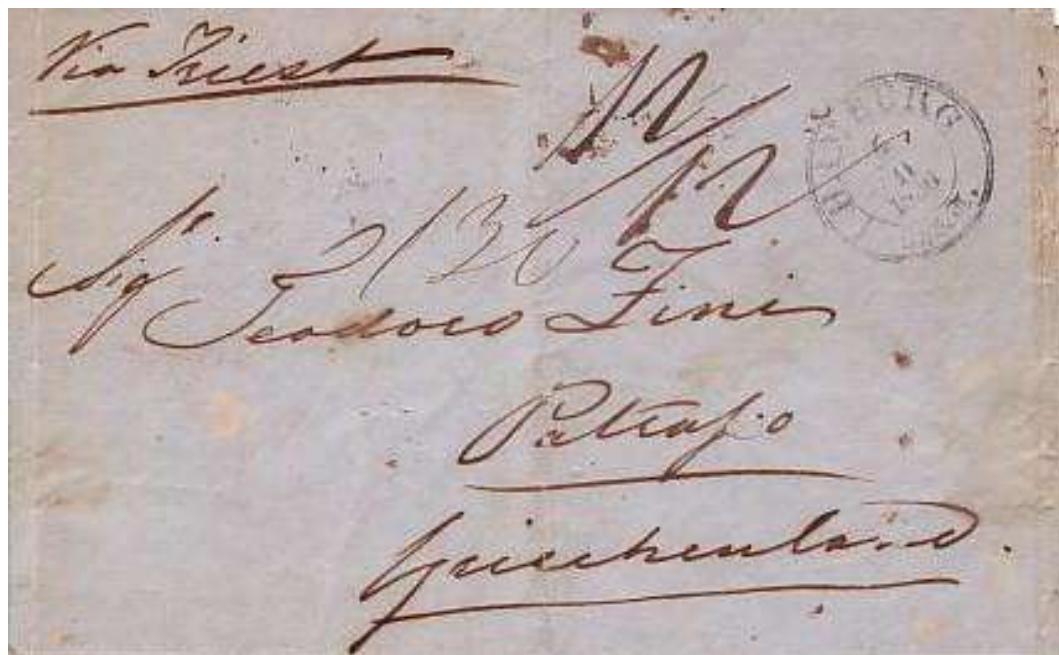 Via Triest
12/12
2/30
Sigr. Teodoro Zini
Patrasso
Griechenland.